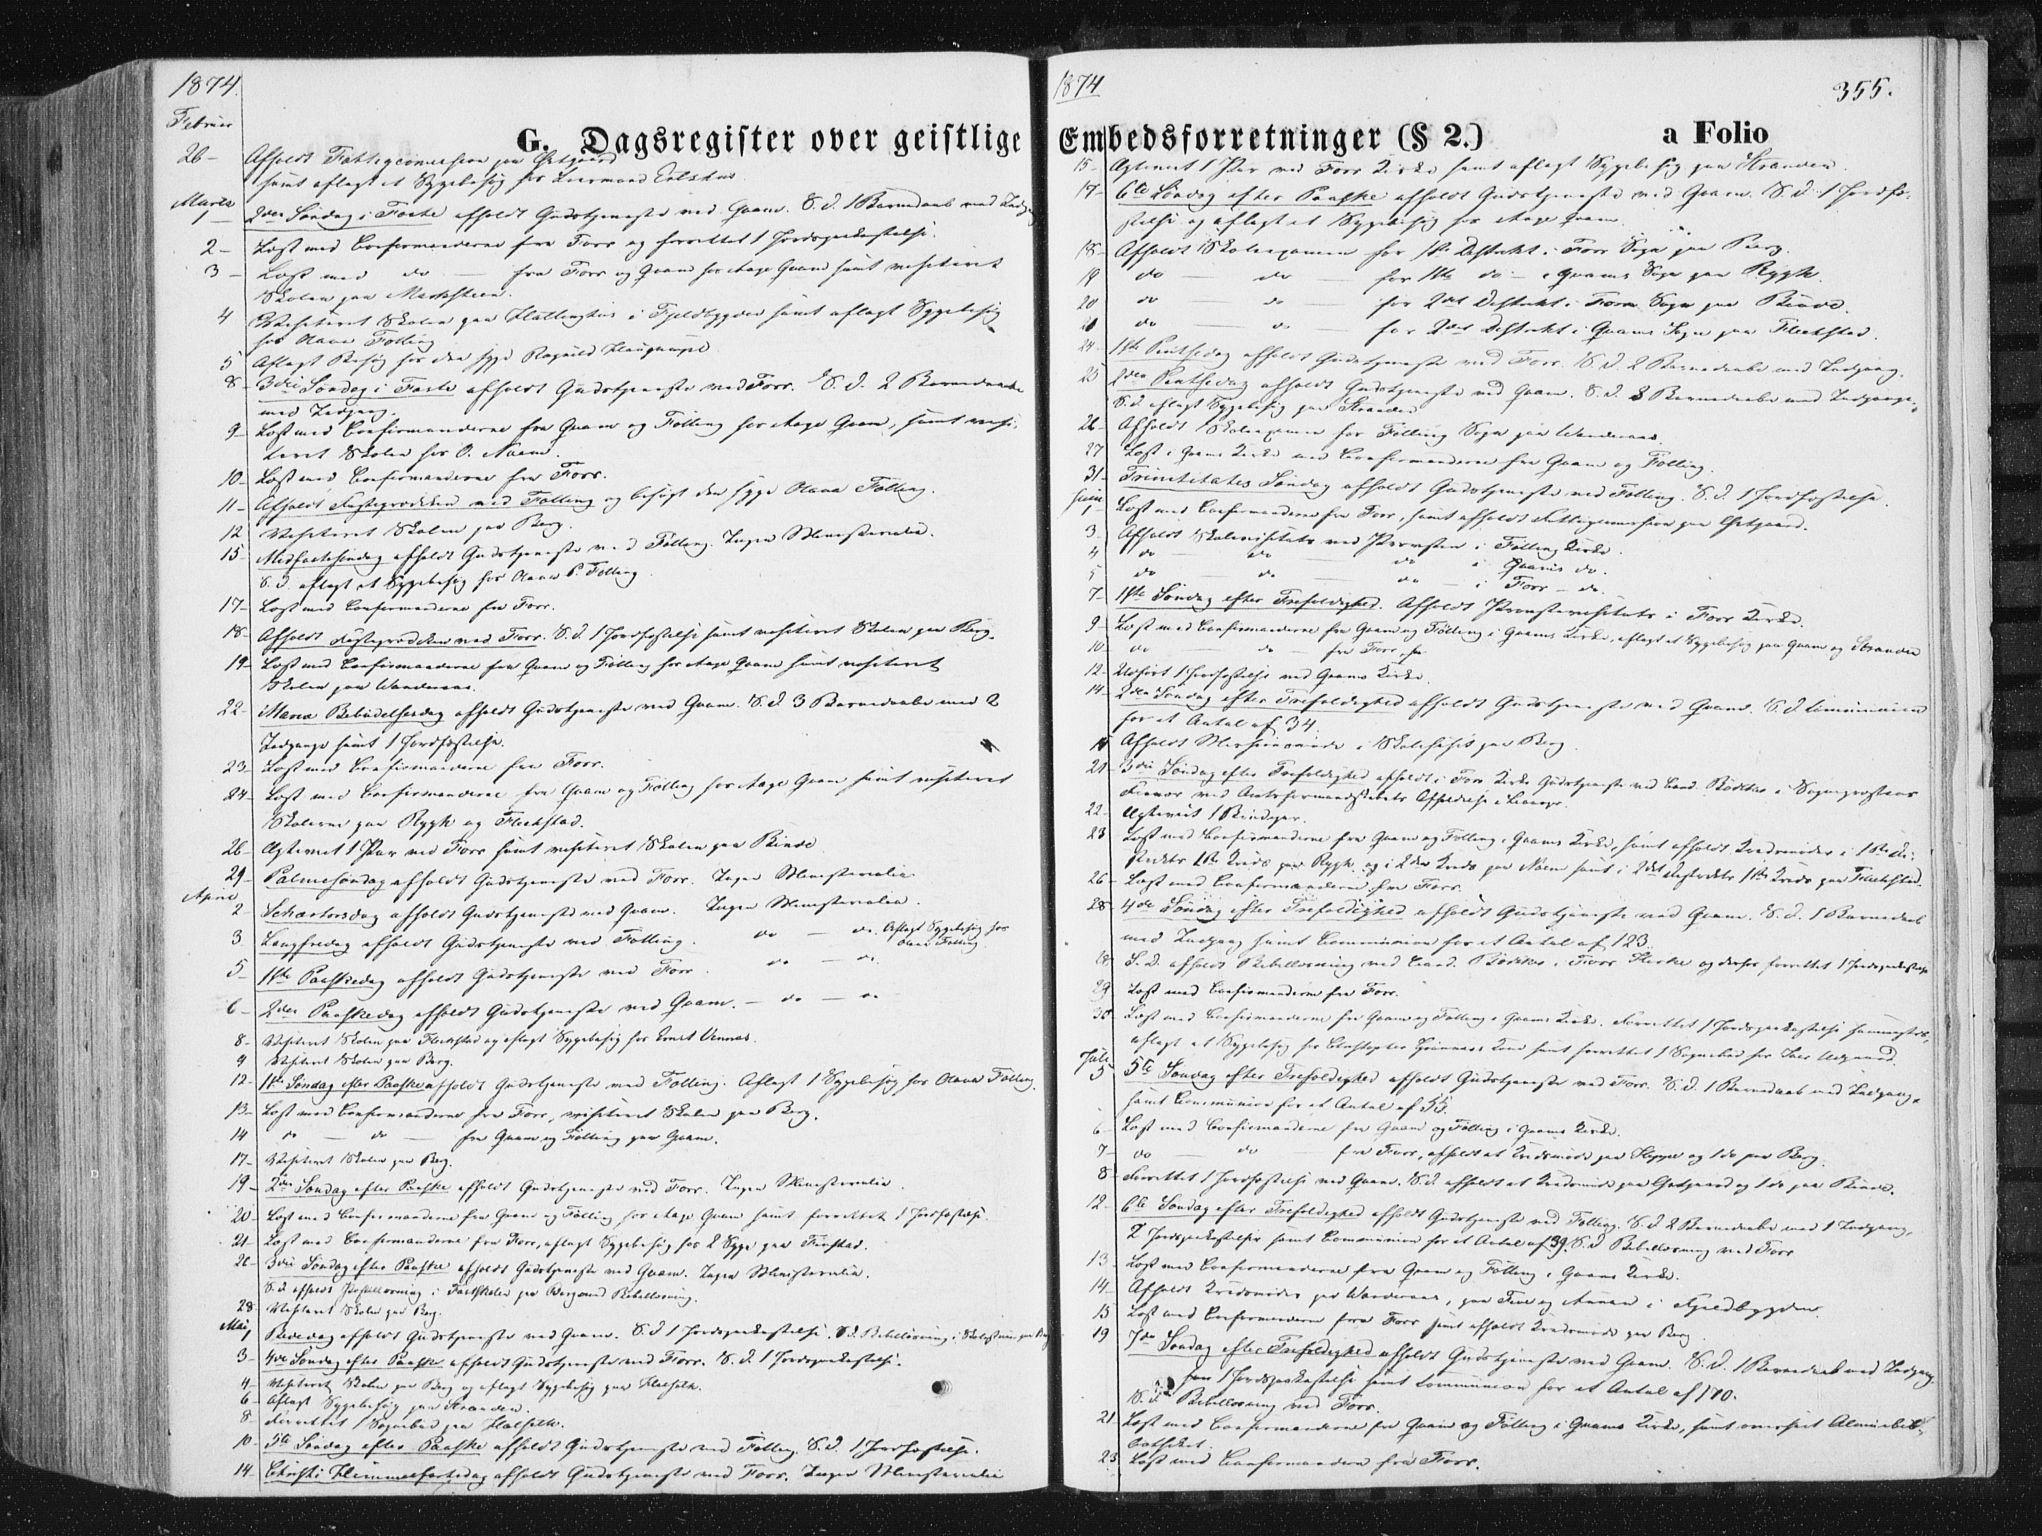 1874.
Februar
G. Dagsregister over geistlige
26 – Afholdt Fattigcommission paa Østgaard
samt aflagt et Sygebesøg hos
Marts
1 2den Søndag i Faste afholdt Gudstjeneste ved Qvam. S. D. 1 Barnedaab med Indgang
2 – Læst med Confirmanderne fra Forr og forrettet 1 Jordpaakastelse.
3 – Læst med do — fra Forr og Qvam hos Aage Qvam samt visiteret
Skolen paa
4 Visiteret Skolen paa i Fjeldbygden samt aflagt Sygebesøg
hos Olava Følling
5 Aflagt Besøg hos den syge
8 – 3die Søndag i Faste afholdt Gudstjeneste ved Forr. S. D. 2 Barnedaabe
med Indgang.
9 – Læst med Confirmanderne fra Qvam og Følling hos Aage Qvam, samt visi-
teret Skolen hos O. Naem.
10 – Læst med Confirmanderne fra Forr.
11 – Afholdt Fasteprædiken ved Følling og besøgt den syge Olava Følling.
12 Visiteret Skolen paa Berg.
15 – Midfastesøndag afholdt Gudstjeneste ved Følling. Ingen Ministerialia.
S. D. aflagt et Sygebesøg hos Olava P. Følling.
17 – Læst med Confirmanderne fra Forr.
18 – Afholdt Fasteprædiken ved Forr. S. D. 1 Jordfæstelse samt visiteret Skolen paa Berg.
19 – Læst med Confirmanderne fra Qvam og Følling hos Aage Qvam samt visiteret
Skolen paa Wanderaas.
22 – Maria Bebudelsesdag afholdt Gudstjeneste ved Qvam. S. D 3 Barnedaabe med 2
Indgange samt 1 Jordfæstelse.
23 – Læst med Confirmanderne fra Forr.
24 – Læst med Confirmanderne fra Qvam og Følling hos Aage Qvam samt visiteret
Skolerne paa Rygh og Flekstad.
26 – Ægteviet 1 Par ved Forr samt visiteret Skolen paa Binde
29 – Palmesøndag afholdt Gudstjeneste ved Forr. Ingen Ministerialia
April
2 – Skjærtorsdag afholdt Gudstjeneste ved Qvam. Ingen Ministerialia.
3 Langfredag afholdt Gudstjeneste ved Følling. do — do. Aflagt Sygebesøg hos
Olava Følling
5 – 1ste Paaskedag afholdt Gudstjeneste ved Forr. do — do.
6 – 2den Paaskedag afholdt Gudstjeneste ved Qvam. — do — do
8 – Visiteret Skolen paa Flekstad og aflagt Sygebesøg hos
9 Visiteret Skolen paa Berg.
12 – 1ste Søndag efter Paaske afholdt Gudstjeneste ved Følling. Aflagt 1 Sygebesøg hos Olava Følling.
13 – Læst med Confirmanderne fra Forr, visiteret Skolen paa Berg.
14 do — do — fra Qvam og Følling paa Qvam.
17 – Visiteret Skolen paa Berg.
19 – 2den Søndag efter Paaske afholdt Gudstjeneste ved Forr. Ingen Ministerialia.
20 – Læst med Confirmanderne fra Qvam og Følling hos Aage Qvam samt forrettet 1 Jordfæstelse.
21 – Læst med Confirmanderne fra Forr, aflagt Sygebesøg hos 2 Syge paa
26 – 3die Søndag efter Paaske afholdt Gudstjeneste ved Qvam. Ingen Ministerialia.
S. D afholdt i paa Berg med Bibellæsning.
28 – Visiteret Skolen paa Berg.
Mai
1 Bededag afholdt Gudstjeneste ved Qvam. S. D 1 Jordpaakastelse. S. D. Bibellæsning i
3 – 4de Søndag efter Paaske afholdt Gudstjeneste ved Forr. S. D. 1 Jordpaakastelse.
4 – Visiteret Skolen paa Berg og aflagt Sygebesøg paa
6 – Aflagt Sygebesøg paa Stranden.
8 – Forrettet 1 Sognebud paa
10 – 5te Søndag efter Paaske afholdt Gudstjeneste ved Følling. S. D. 1 Jordfæstelse.
14 – Christi Himmelfartsdag afholdt Gudstjeneste ved Forr. Ingen Ministerialia
1874
355.
Embedsforretninger (§ 2.)
a Folio
15 – Ægteviet 1 Par ved Forr Kirke samt aflagt Sygebesøg paa Stranden.
17 – 6te Søndag efter Paaske afholdt Gudstjeneste ved Qvam. S. D. 1 Jordfæ-
stelse og aflagt et Sygebesøg hos Aage Qvam
18 – Afholdt Skoleexamen for 1ste Distrikt i Forr Sogn paa Berg.
19 do — do — for 1ste do – i Qvams Sogn paa Rygh.
20 do — do — for 2det Distrikt i Forr Sogn paa Binde.
21 do — do — for 2det Distrikt i Qvams Sogn paa Flekstad.
24 – 1ste Pintsedag afholdt Gudstjeneste ved Forr. S. D. 2 Barnedaabe med Indgang.
25 2den Pintsedag afholdt Gudstjeneste ved Qvam. S. D. 3 Barnedaabe med Indgange.
S. D aflagt Sygebesøg paa Stranden
26 – Afholdt Skoleexamen for Følling Sogn paa Wanderaas.
27 Læst i Qvams Kirke med Confirmanderne fra Qvam og Følling.
31 – Trinitatis Søndag afholdt Gudstjeneste ved Følling. S. D. 1 Jordfæstelse.
Juni
1 Læst med Confirmanderne fra Forr, samt afholdt Fattigcommission paa Østgaard.
3 Afholdt Skolevisitats ved Provsten i Følling Kirke.
4 do — do — do i Qvams do.
5 do — do — do — i Forr – do.
7 – 1ste Søndag efter Trefoldighed. Afholdt Provstevisitats i Forr Kirke.
9 – Læst med Confirmanderne fra Qvam og Følling i Qvams Kirke, aflagt et Sygebesøg paa Qvam og Stranden
10 – do — do — fra Forr
12 – Udført 1 Jordfæstelse ved Qvams Kirke.
14 – 2den Søndag efter Trefoldighed afholdt Gudstjeneste ved Qvam. S. D. Communion
for et Antal af 34.
Afholdt Missionsmøde i Skolehuset paa Berg.
21 – 3die Søndag efter Trefoldighed afholdt i Forr Kirke Gudstjeneste ved Cand. Bødtker i Sognepræstens
ved Amtsformandskabets Afholdelse i
22 – Ægteviet 1
23 Læst med Confirmanderne fra Qvam og Følling i Qvams Kirke, samt afholdt Kredsmøder i 1ste Di-
strikts 1ste Kreds paa Rygh og i 2den Kreds paa Naem samt i 2det Distrikts 1ste Kreds paa Flekstad.
26 – Læst med Confirmanderne fra Forr.
28 – 4de Søndag efter Trefoldighed afholdt Gudstjeneste ved Qvam. S. D. 1 Barnedaab
med Indgang samt Communion for et Antal af 123.
28 S. D. afholdt Bibellæsning ved Cand. Bødtker i Forr Kirke og derhos forrettet 1 Jordpaakastelse
29 Læst med Confirmanderne fra Forr.
30 – Læst med Confirmanderne fra Qvam og Følling i Qvams Kirke. Forrettet 1 Jordpaakastelse
aflagt et Sygebesøg hos samt forrettet 1 Sognebud hos
Juli
5 5te Søndag efter Trefoldighed afholdt Gudstjeneste ved Forr. S. D. 1 Barnedaab med Indgang,
samt Communion for et Antal af 55.
6 – Læst med Confirmanderne fra Qvam og Følling i Qvams Kirke.
7 – do — do — fra Forr, afholdt et Kredsmøde paa og 1 do paa Berg.
8 Forrettet 1 Jordfæstelse ved Qvam. S. D afholdt et Kredsmøde paa Østgaard og 1 do paa Binde.
12 – 6te Søndag efter Trefoldighed afholdt Gudstjeneste ved Følling. S. D 2 Barnedaabe med 1 Indgang,
2 Jordpaakastelser samt Communion for et Antal af 39. S. D Bibellæsning ved Forr
13 Læst med Confirmanderne fra Qvam og Følling i Qvams Kirke.
14 – Afholdt Kredsmøder paa Wanderaas, paa og i Fjeldbygden.
15 Læst med Confirmanderne fra Forr samt afholdt Kredsmøde paa Berg
19 7de Søndag efter Trefoldighed afholdt Gudstjeneste ved Qvam. S. D. 1 Barnedaab med Indgang.
1 Jordpaakastelse samt Communion for et Antal af 110.
S. D. Bibellæsning ved Forr.
21 – Læst med Confirmanderne fra Qvam og Følling i Qvams Kirke, samt
23 Læst med Confirmanderne fra Forr.